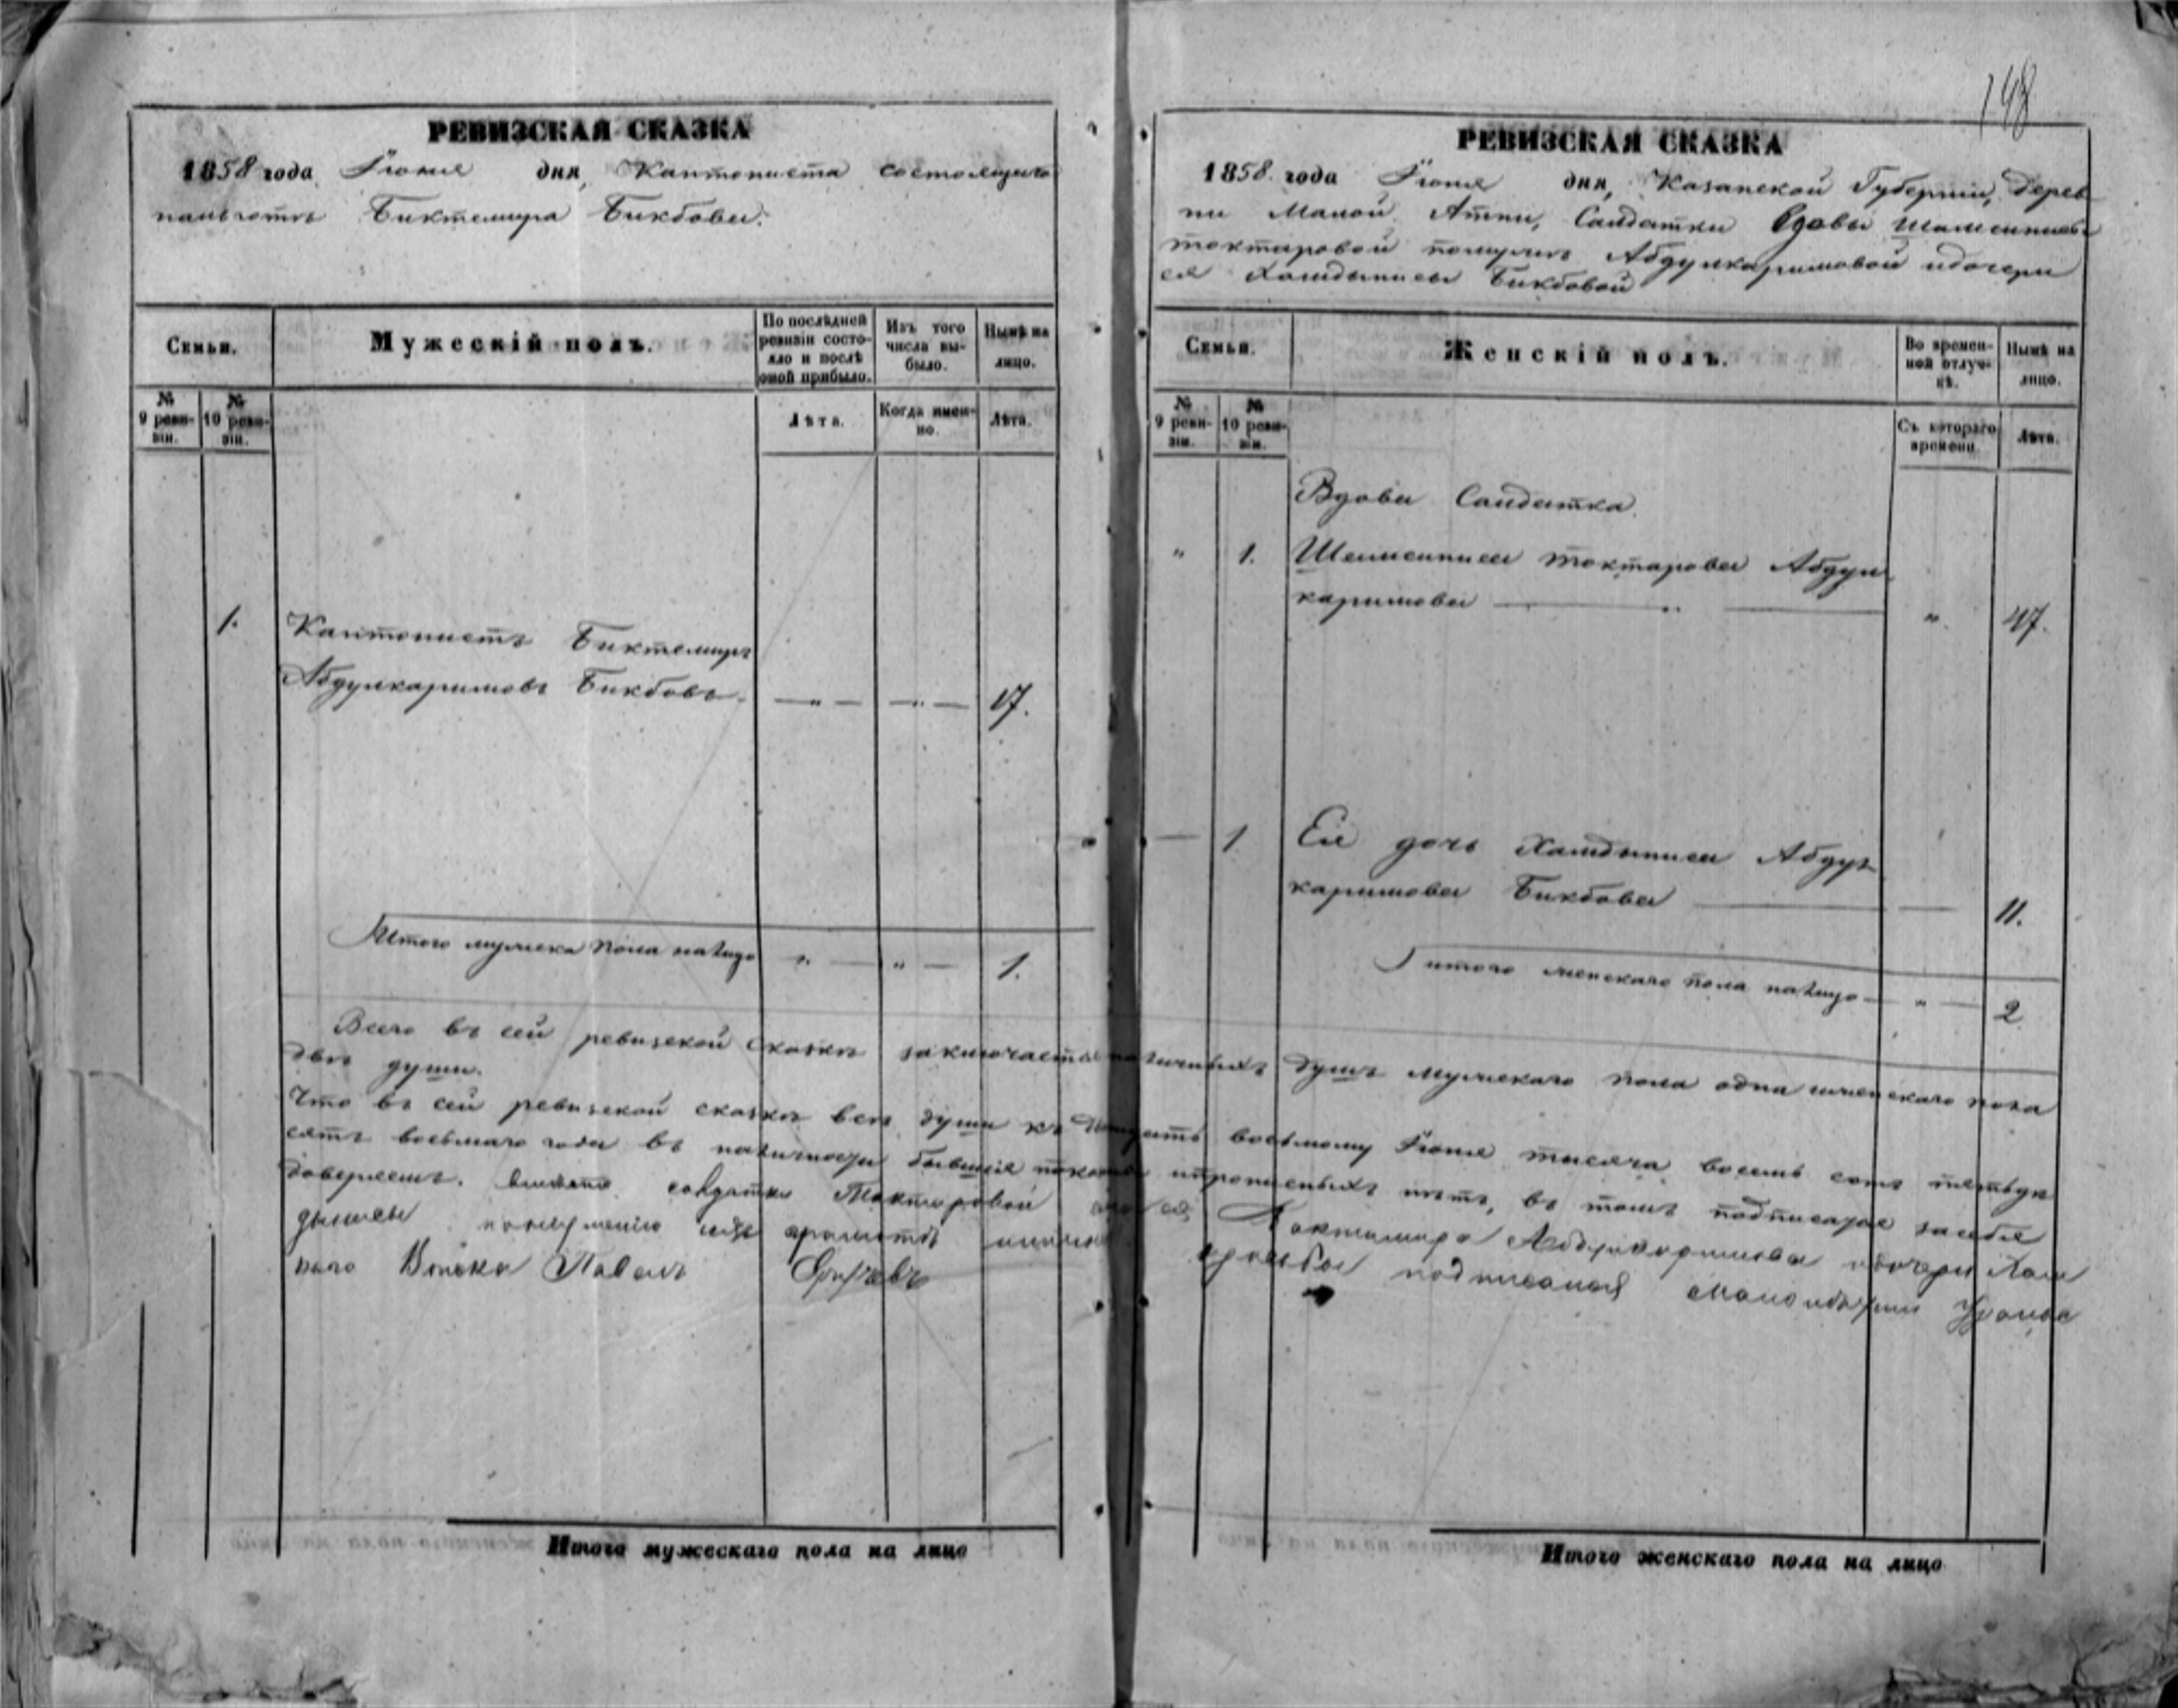 РЕВИЗСКАЯ СКАЗКА
1858 года Іюня дня, Кантониста состоящаго
Биктемира Бикбова.
Семьи.
Мужескій полъ.
По послѣдней ревизіи состояло и послѣ оной прибыло.
Изъ того числа выбыло.
Нынѣ на лицо.
№ 9 ревизіи.
№ 10 ревизіи.
Лѣта.
Когда именно.
Лѣта.
1. Кантонистъ Биктемиръ
Абдулкаримовъ Бикбовъ — „ — — „ — 17.
Итого мужска пола налицо „ — „ — 1.
Итого мужескаго пола на лицо
148
РЕВИЗСКАЯ СКАЗКА
1858 года Іюня дня, Казанской Губерніи, Дерев
ни Малой Атни, Салдатки Вдовы
токтаровой Абдулкаримовой идочери
ея Бикбовой
Семьи.
Женскій полъ.
Во временной отлучкѣ.
Нынѣ на лицо.
№ 9 ревизіи.
№ 10 ревизіи.
Съ котораго времени.
Лѣта.
Вдова Салдатка
„ 1. токтарова Абдул
каримова — „ — „ 47.
— 1 Ея дочь Абдул
каримова Бикбова — — 11.
итого женскаго пола налицо — „ — 2
Всего въ сей ревизской сказкѣ заключается наличныхъ душъ мужескаго пола одна иженскаго пола
двѣ души.
Что въ сей ревизской сказкѣ всѣ души къ восьмому Іюня тысяча восемь сотъ пятьде
сятъ восьмаго года въ наличности бывшія показаны ипрописныхъ нѣтъ, въ томъ подписался
довѣряетъ. солдатки Токтаровой Абдулкаримова идочери
грамотѣ просьбы подписался
Войска Павелъ
Итого женскаго пола на лицо